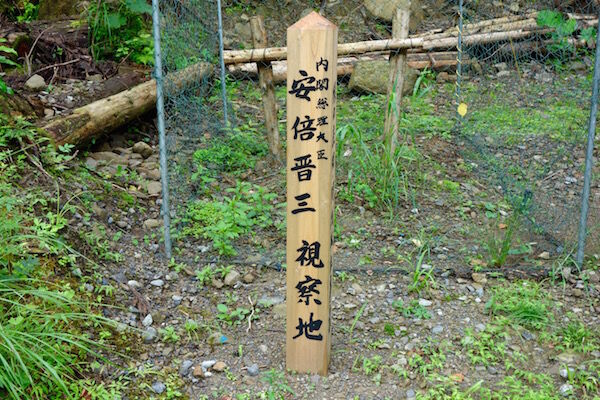 内閣総理大臣
安倍晋三 視察地